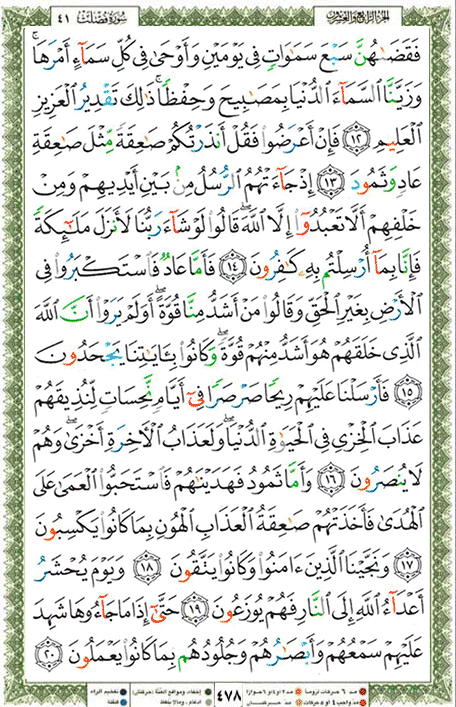 الجزء الرابع والعشرون سورة فصلت ٤١
فَقَضَىٰهُنَّ سَبْعَ سَمَٰوَاتٍ فِى يَوْمَيْنِ وَأَوْحَىٰ فِى كُلِّ سَمَآءٍ أَمْرَهَا ۚ
وَزَيَّنَّا ٱلسَّمَآءَ ٱلدُّنْيَا بِمَصَٰبِيحَ وَحِفْظًا ۚ ذَٰلِكَ تَقْدِيرُ ٱلْعَزِيزِ
ٱلْعَلِيمِ ١٢ فَإِنْ أَعْرَضُوا۟ فَقُلْ أَنذَرْتُكُمْ صَٰعِقَةً مِّثْلَ صَٰعِقَةِ
عَادٍ وَثَمُودَ ١٣ إِذْ جَآءَتْهُمُ ٱلرُّسُلُ مِنۢ بَيْنِ أَيْدِيهِمْ وَمِنْ
خَلْفِهِمْ أَلَّا تَعْبُدُوٓا۟ إِلَّا ٱللَّهَ ۖ قَالُوا۟ لَوْ شَآءَ رَبُّنَا لَأَنزَلَ مَلَٰٓئِكَةً
فَإِنَّا بِمَآ أُرْسِلْتُم بِهِۦ كَٰفِرُونَ ١٤ فَأَمَّا عَادٌ فَٱسْتَكْبَرُوا۟ فِى
ٱلْأَرْضِ بِغَيْرِ ٱلْحَقِّ وَقَالُوا۟ مَنْ أَشَدُّ مِنَّا قُوَّةً ۖ أَوَلَمْ يَرَوْا۟ أَنَّ ٱللَّهَ
ٱلَّذِى خَلَقَهُمْ هُوَ أَشَدُّ مِنْهُمْ قُوَّةً ۖ وَكَانُوا۟ بِـَٔايَٰتِنَا يَجْحَدُونَ
١٥ فَأَرْسَلْنَا عَلَيْهِمْ رِيحًا صَرْصَرًا فِىٓ أَيَّامٍ نَّحِسَاتٍ لِّنُذِيقَهُمْ
عَذَابَ ٱلْخِزْىِ فِى ٱلْحَيَوٰةِ ٱلدُّنْيَا ۖ وَلَعَذَابُ ٱلْءَاخِرَةِ أَخْزَىٰ ۖ وَهُمْ
لَا يُنصَرُونَ ١٦ وَأَمَّا ثَمُودُ فَهَدَيْنَٰهُمْ فَٱسْتَحَبُّوا۟ ٱلْعَمَىٰ عَلَى
ٱلْهُدَىٰ فَأَخَذَتْهُمْ صَٰعِقَةُ ٱلْعَذَابِ ٱلْهُونِ بِمَا كَانُوا۟ يَكْسِبُونَ
١٧ وَنَجَّيْنَا ٱلَّذِينَ ءَامَنُوا۟ وَكَانُوا۟ يَتَّقُونَ ١٨ وَيَوْمَ يُحْشَرُ
أَعْدَآءُ ٱللَّهِ إِلَى ٱلنَّارِ فَهُمْ يُوزَعُونَ ١٩ حَتَّىٰٓ إِذَا مَا جَآءُوهَا شَهِدَ
عَلَيْهِمْ سَمْعُهُمْ وَأَبْصَٰرُهُمْ وَجُلُودُهُم بِمَا كَانُوا۟ يَعْمَلُونَ ٢٠
مد ٦ حركات لزوماً مد ٢ أو ٤ أو ٦ جوازاً ٤٧٨ إخفاء، ومواقع الغنة (حركتان) تفخيم الراء
مد واجب ٤ أو ٥ حركات مد حركتان إدغام، وما لا يلفظ قلقلة